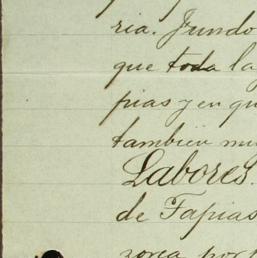 ria. Fundo
que toda la
pias y en qu
tambien mu
Labores.
de Tapias
zonca por